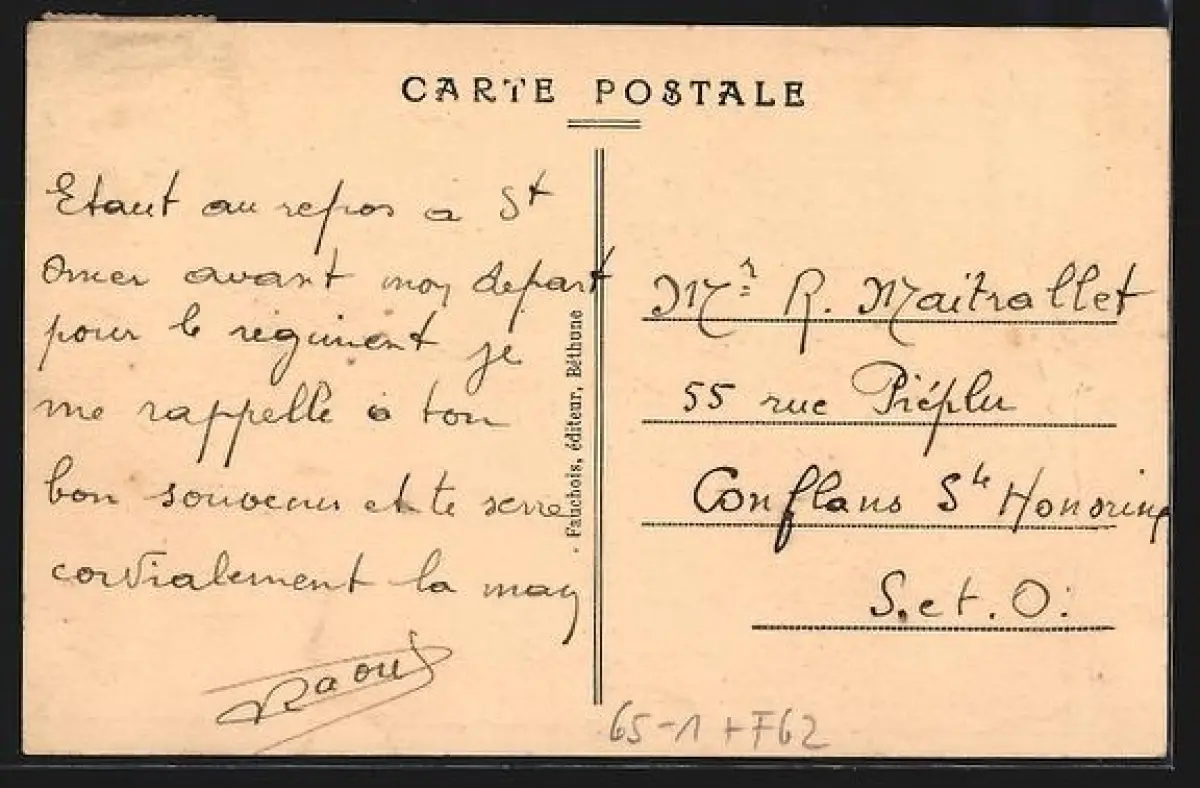 CARTE POSTALE
Etant au repos a St
Omer avant mon depart
pour le regiment je
me rappelle à ton
bon souvenir et te serre
cordialement la main
Raoul
- Fauchois, éditeur, Béthune
Mr R. Maitrallet
55 rue Piéplu
Conflans Ste Honorine
S. et. O.
65-1 + F62